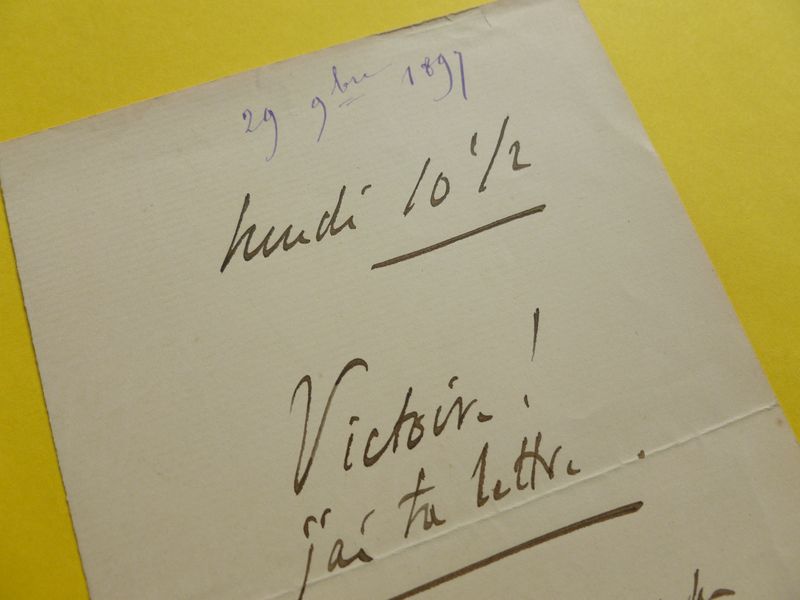 29 9bre 1897
lundi 10 1/2
Victoire !
j'ai ta lettre .